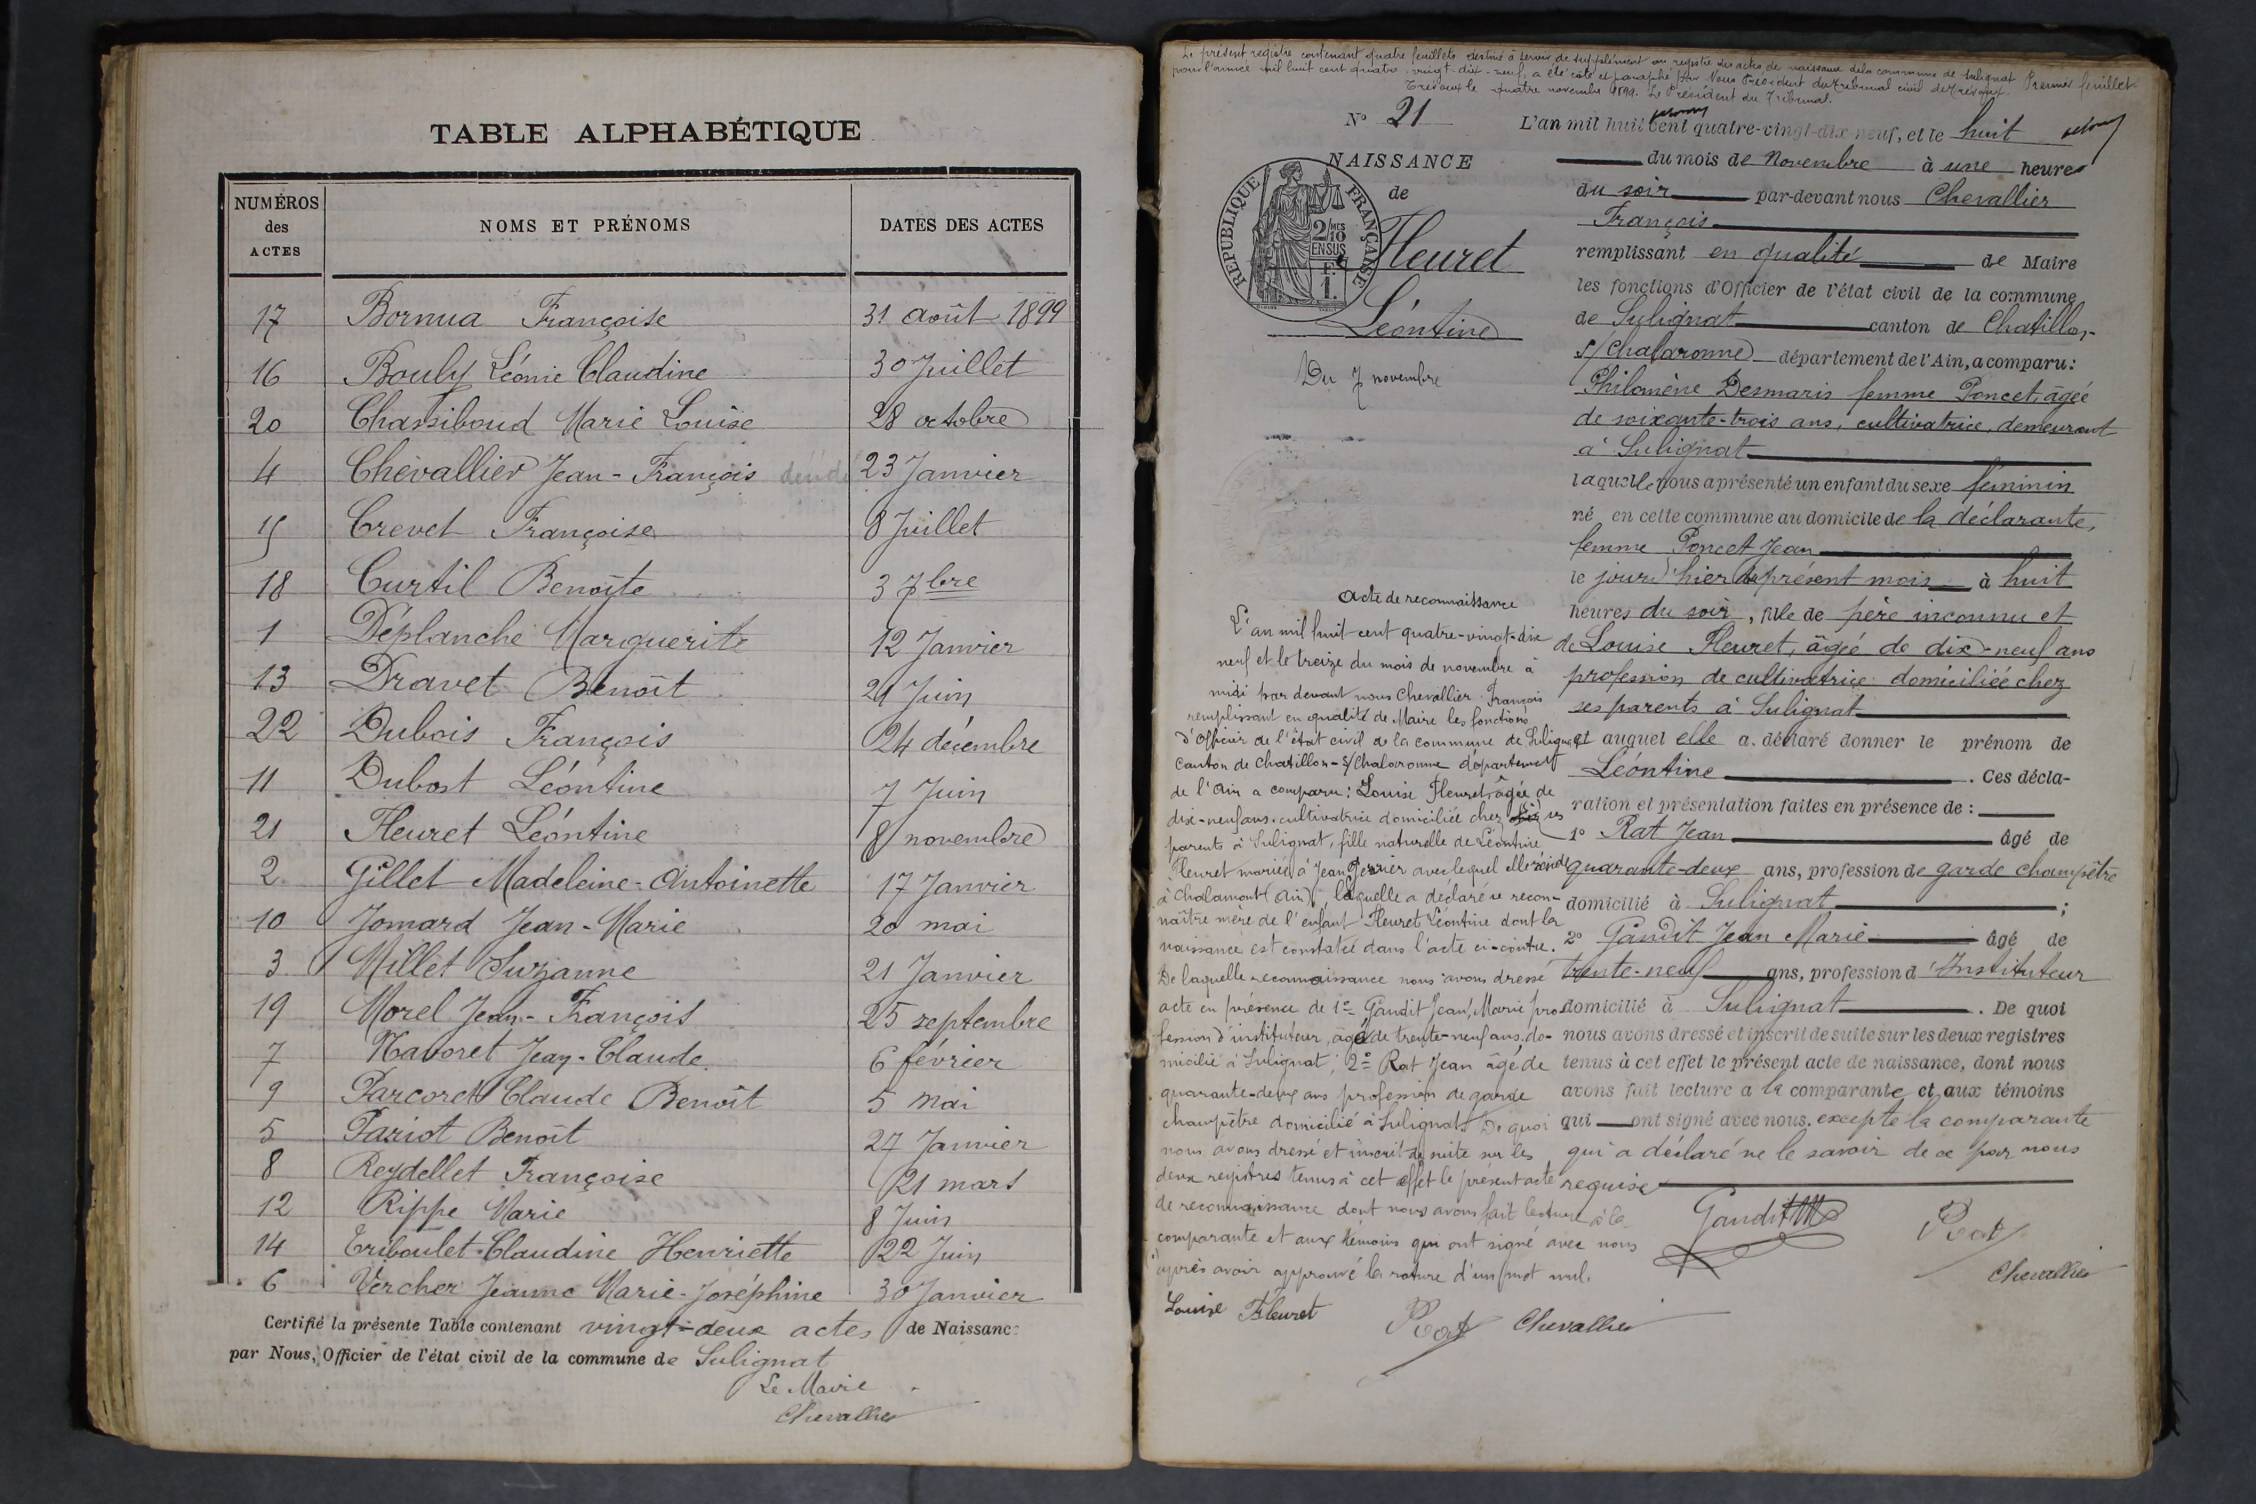 TABLE ALPHABÉTIQUE
NUMÉROS des ACTES
NOMS ET PRÉNOMS
DATES DES ACTES
17 Bornua Françoise 31 août 1899
16 Bouly Léonie Claudine 30 Juillet
20 Chassiboud Marie Louise 28 octobre
4 Chevallier Jean-François décédé 23 Janvier
15 Crevet Françoise 8 Juillet
18 Curtil Benoîte 3 7bre
1 Déplanche Marguerite 12 Janvier
13 Dravet Benoît 21 Juin
22 Dubois François 24 décembre
11 Dubost Léontine 7 Juin
21 Fleuret Léontine 8 novembre
2 Gillet Madeleine-Antoinette 17 Janvier
10 Jomard Jean-Marie 20 mai
3 Millet Suzanne 21 Janvier
19 Morel Jean-François 25 septembre
7 Navoret Jean-Claude 6 février
9 Parcoret Claude Benoît 5 mai
5 Pariot Benoît 27 Janvier
8 Reydellet Françoise 21 mars
12 Rippe Marie 8 Juin
14 Triboulet Claudine Henriette 22 Juin
6 Vercher Jeanne Marie-Joséphine 30 Janvier
Certifié la présente Table contenant vingt-deux actes de Naissance
par Nous, Officier de l'état civil de la commune de Sulignat
Le Maire
Chevallier
Le présent registre contenant quatre feuillets destiné à servir de supplément au registre des actes de naissance de la commune de Sulignat Premier feuillet
pour l'année mil huit cent quatre-vingt-dix-neuf, a été coté et paraphé par Nous Président du Tribunal civil de Trévoux.
Trévoux le quatre novembre 1899. Le Président du Tribunal.
N° 21
NAISSANCE
de
RÉPUBLIQUE FRANÇAISE
2/10
EN SUS
1 F.
Fleuret
Léontine
Du 7 novembre
L'an mil huit cent quatre-vingt-dix neuf, et le huit
du mois de Novembre à une heure
du soir par-devant nous Chevallier
François
remplissant en qualité de Maire
les fonctions d'Officier de l'état civil de la commune
de Sulignat canton de Chatillon-
s/Chalaronne département de l'Ain, a comparu :
Philomène Desmaris femme Poncet, âgée
de soixante-trois ans, cultivatrice, demeurant
à Sulignat
laquelle nous a présenté un enfant du sexe féminin
né en cette commune au domicile de la déclarante,
femme Poncet Jean
le jour d'hier du présent mois à huit
heures du soir, fille de père inconnu et
de Louise Fleuret, âgée de dix-neuf ans
profession de cultivatrice domiciliée chez
ses parents à Sulignat
et auquel elle a déclaré donner le prénom de
Léontine. Ces décla-
ration et présentation faites en présence de :
1° Rat Jean âgé de
quarante-deux ans, profession de garde champêtre
domicilié à Sulignat ;
2° Gandit Jean Marie âgé de
trente-neuf ans, profession d'Instituteur
domicilié à Sulignat. De quoi
nous avons dressé et inscrit de suite sur les deux registres
tenus à cet effet le présent acte de naissance, dont nous
avons fait lecture a la comparante et aux témoins
qui ont signé avec nous. excepté la comparante
qui a déclaré ne le savoir de ce par nous
requise
Gandit Rat
Chevallier
Acte de reconnaissance
L'an mil huit cent quatre-vingt-dix
neuf et le treize du mois de novembre à
midi par devant nous Chevallier François
remplissant en qualité de Maire les fonctions
d'Officier de l'état civil de la commune de Sulignat
Canton de Chatillon-s/Chalaronne département
de l'Ain a comparu : Louise Fleuret, âgée de
dix-neuf ans, cultivatrice domiciliée chez ses
parents à Sulignat, fille naturelle de Léontine
Fleuret mariée à Jean Perrier avec lequel elle réside
à Chalamont (Ain), laquelle a déclaré se recon-
naître mère de l'enfant Fleuret Léontine dont la
naissance est constatée dans l'acte ci-contre.
De laquelle reconnaissance nous avons dressé
acte en présence de 1° Gandit Jean, Marie pro-
fession d'instituteur, âgé de trente-neuf ans, do-
micilié à Sulignat ; 2° Rat Jean âgé de
quarante-deux ans profession de garde
champêtre domicilié à Sulignat. De quoi
nous avons dressé et inscrit de suite sur les
deux registres tenus à cet effet le présent acte
de reconnaissance dont nous avons fait lecture à la
comparante et aux témoins qui ont signé avec nous
après avoir approuvé la rature d'un mot nul.
Louise Fleuret Rat Chevallier